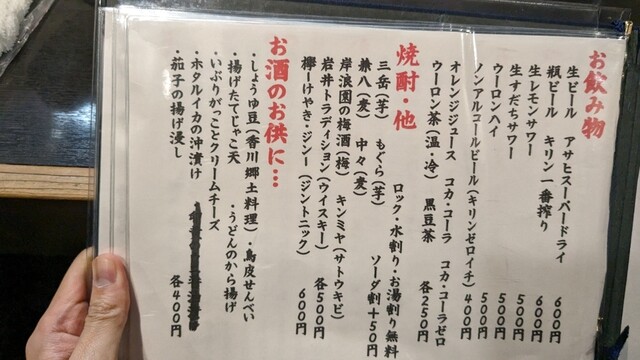 お飲み物
生ビール アサヒスーパードライ 600円
瓶ビール キリン一番搾り 600円
生レモンサワー 500円
生すだちサワー 500円
ウーロンハイ 500円
ノンアルコールビール(キリンゼロイチ) 400円
オレンジジュース コカ・コーラ コカ・コーラゼロ
ウーロン茶(温・冷) 黒豆茶 各250円
焼酎・他
ロック・水割り・お湯割り無料
三岳(芋) もぐら(芋) ソーダ割+50円
兼八(麦) 中々(麦)
岸浪園の梅酒(梅) キンミヤ(サトウキビ)
岩井トラディション(ウイスキー) 各500円
欅ーけやき・ジンー(ジントニック) 600円
お酒のお供に…
・しょうゆ豆(香川郷土料理)・鳥皮せんべい
・揚げたてじゃこ天 ・うどんのから揚げ
・いぶりがっことクリームチーズ
・ホタルイカの沖漬け
・茄子の揚げ浸し 各400円